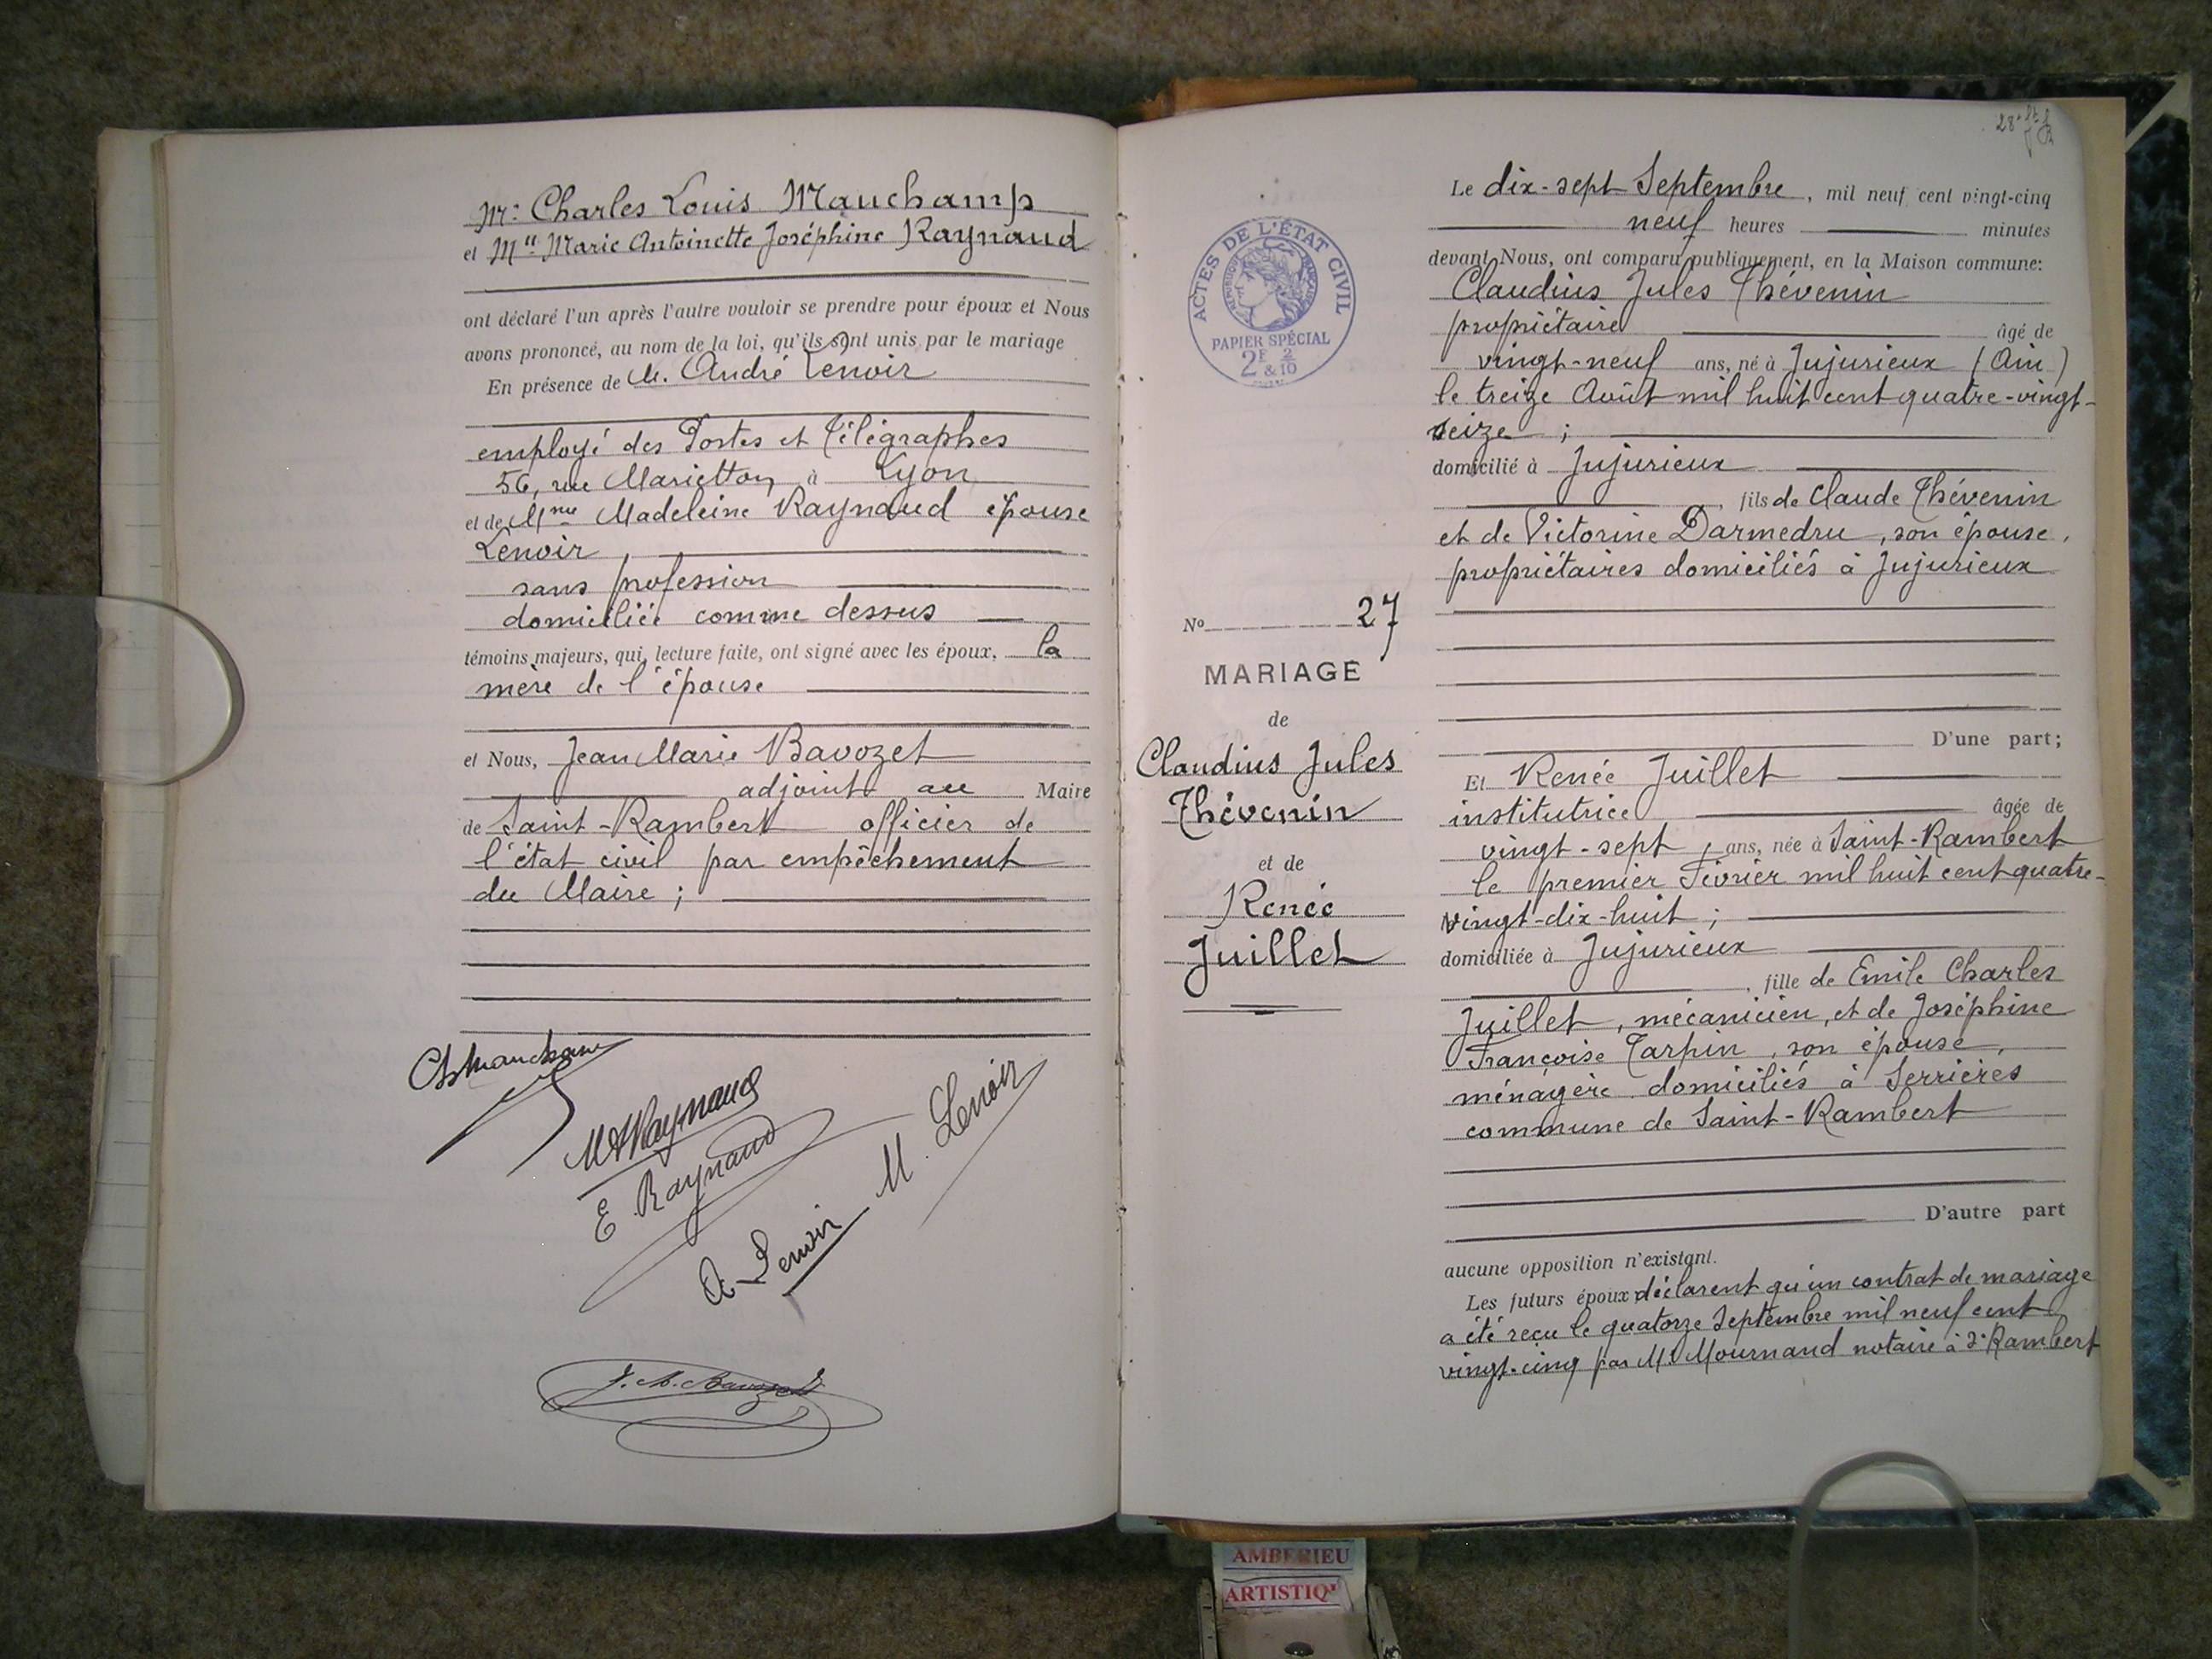 Mr. Charles Louis Mauchamp
et Mlle Marie Antoinette Joséphine Raynaud
ont déclaré l'un après l'autre vouloir se prendre pour époux et Nous
avons prononcé, au nom de la loi, qu'ils sont unis par le mariage
En présence de M. André Lenoir
employé des Postes et Télégraphes
56, rue Marietton, à Lyon
et de Mme Madeleine Raynaud épouse
Lenoir,
sans profession
domiciliée comme dessus
témoins majeurs, qui, lecture faite, ont signé avec les époux, la
mère de l'épouse
et Nous, Jean Marie Bavozet
adjoint au Maire
de Saint-Rambert officier de
l'état civil par empêchement
du Maire ;
Ch Mauchamp
MA Raynaud
E Raynaud
A. Lenoir
M. Lenoir
J. M. Bavozet
ACTES DE L'ÉTAT CIVIL
RÉPUBLIQUE FRANÇAISE
PAPIER SPÉCIAL
2F & 2/10
No 27
MARIAGE
de
Claudius Jules
Thévenin
et de
Renée
Juillet
Le dix-sept Septembre, mil neuf cent vingt-cinq
neuf heures minutes
devant Nous, ont comparu publiquement, en la Maison commune:
Claudius Jules Thévenin
propriétaire âgé de
vingt-neuf ans, né à Jujurieux (Ain)
le treize Août mil huit cent quatre-vingt-
seize ;
domicilié à Jujurieux
, fils de Claude Thévenin
et de Victorine Darmedru, son épouse,
propriétaires domiciliés à Jujurieux
D'une part;
Et Renée Juillet
institutrice âgée de
vingt-sept, ans, née à Saint-Rambert
le premier Février mil huit cent quatre-
vingt-dix-huit ;
domiciliée à Jujurieux
, fille de Emile Charles
Juillet, mécanicien, et de Joséphine
Françoise Tarpin, son épouse,
ménagère domiciliés à Serrières
commune de Saint-Rambert
D'autre part
aucune opposition n'existant.
Les futurs époux déclarent qu'un contrat de mariage
a été reçu le quatorze Septembre mil neuf cent
vingt-cinq par Me Mournand notaire à St Rambert
AMBERIEU
ARTISTIQ'